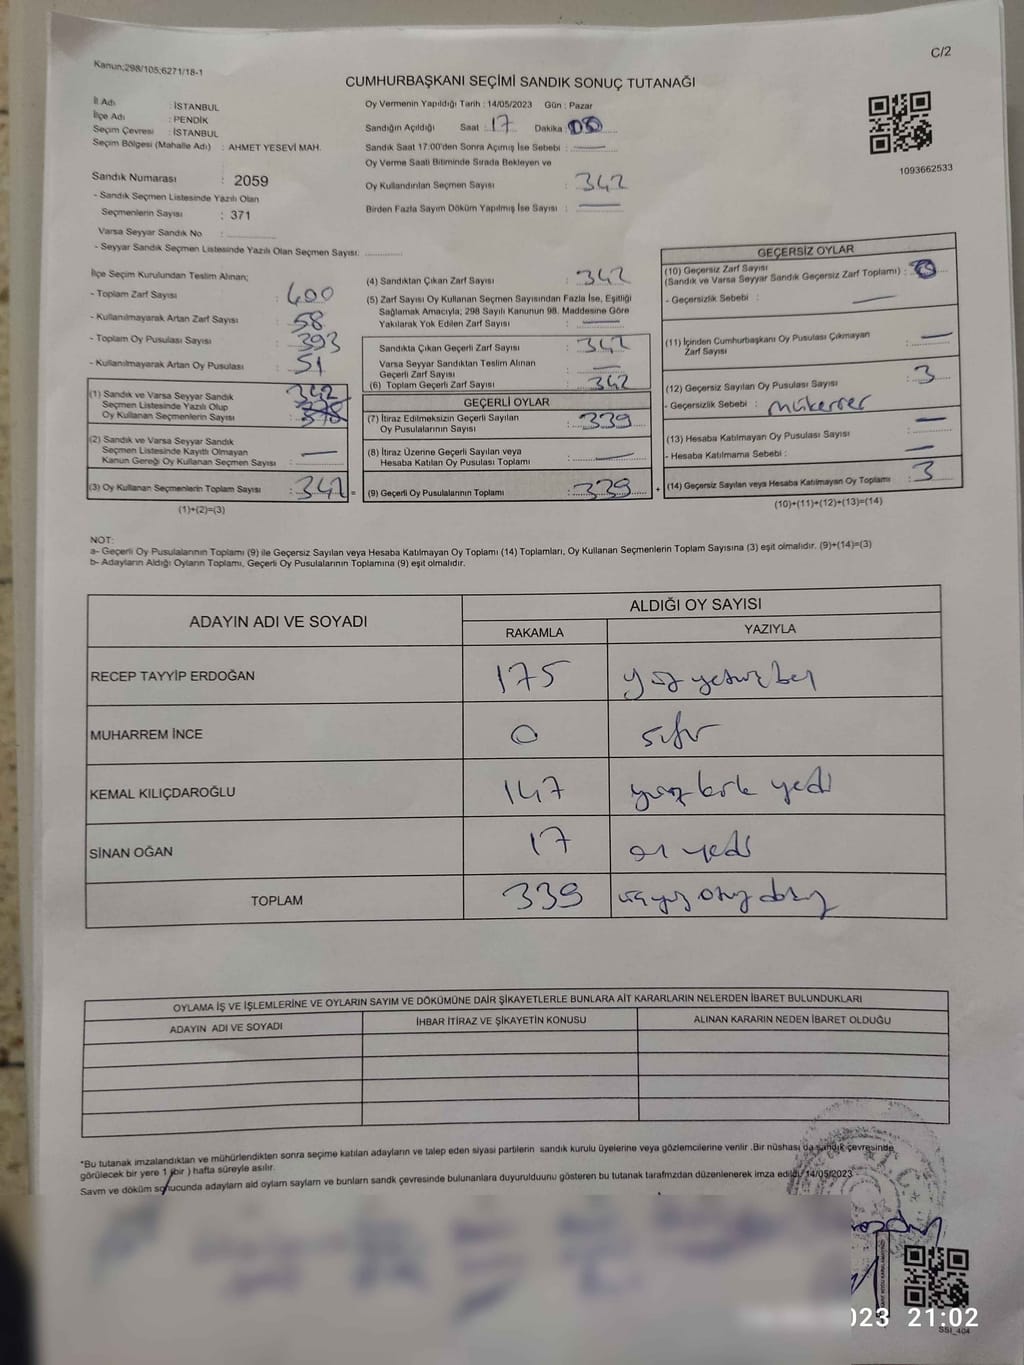 Kanun;298/105;6271/18-1
C/2
CUMHURBAŞKANI SEÇİMİ SANDIK SONUÇ TUTANAĞI
İl Adı : İSTANBUL
İlçe Adı : PENDİK
Seçim Çevresi : İSTANBUL
Seçim Bölgesi (Mahalle Adı) : AHMET YESEVİ MAH.
Sandık Numarası : 2059
- Sandık Seçmen Listesinde Yazılı Olan
Seçmenlerin Sayısı : 371
Varsa Seyyar Sandık No :
- Seyyar Sandık Seçmen Listesinde Yazılı Olan Seçmen Sayısı:
Oy Vermenin Yapıldığı Tarih : 14/05/2023 Gün : Pazar
Sandığın Açıldığı Saat : 17 Dakika :
Sandık Saat 17:00'den Sonra Açımış İse Sebebi :
Oy Verme Saati Bitiminde Sırada Bekleyen ve
Oy Kullandırılan Seçmen Sayısı : 342
Birden Fazla Sayım Döküm Yapılmış İse Sayısı :
1093662533
İlçe Seçim Kurulundan Teslim Alınan;
- Toplam Zarf Sayısı : 400
- Kullanılmayarak Artan Zarf Sayısı : 58
- Toplam Oy Pusulası Sayısı : 393
- Kullanılmayarak Artan Oy Pusulası : 51
(1) Sandık ve Varsa Seyyar Sandık
Seçmen Listesinde Yazılı Olup
Oy Kullanan Seçmenlerin Sayısı : 342
(2) Sandık ve Varsa Seyyar Sandık
Seçmen Listesinde Kayıtlı Olmayan
Kanun Gereği Oy Kullanan Seçmen Sayısı :
(3) Oy Kullanan Seçmenlerin Toplam Sayısı : 342 =
(1)+(2)=(3)
(4) Sandıktan Çıkan Zarf Sayısı : 342
(5) Zarf Sayısı Oy Kullanan Seçmen Sayısından Fazla İse, Eşitliği
Sağlamak Amacıyla; 298 Sayılı Kanunun 98. Maddesine Göre
Yakılarak Yok Edilen Zarf Sayısı :
Sandıkta Çıkan Geçerli Zarf Sayısı : 342
Varsa Seyyar Sandıktan Teslim Alınan
Geçerli Zarf Sayısı :
(6) Toplam Geçerli Zarf Sayısı : 342
GEÇERLİ OYLAR
(7) İtiraz Edilmeksizin Geçerli Sayılan
Oy Pusulalarının Sayısı : 339
(8) İtiraz Üzerine Geçerli Sayılan veya
Hesaba Katılan Oy Pusulası Toplamı :
(9) Geçerli Oy Pusulalarının Toplamı : 339 +
GEÇERSİZ OYLAR
(10) Geçersiz Zarf Sayısı
(Sandık ve Varsa Seyyar Sandık Geçersiz Zarf Toplamı) :
- Geçersizlik Sebebi :
(11) İçinden Cumhurbaşkanı Oy Pusulası Çıkmayan
Zarf Sayısı :
(12) Geçersiz Sayılan Oy Pusulası Sayısı : 3
- Geçersizlik Sebebi : mükerrer
(13) Hesaba Katılmayan Oy Pusulası Sayısı :
- Hesaba Katılmama Sebebi :
(14) Geçersiz Sayılan veya Hesaba Katılmayan Oy Toplamı : 3
(10)+(11)+(12)+(13)=(14)
NOT:
a- Geçerli Oy Pusulalarının Toplamı (9) ile Geçersiz Sayılan veya Hesaba Katılmayan Oy Toplamı (14) Toplamları, Oy Kullanan Seçmenlerin Toplam Sayısına (3) eşit olmalıdır. (9)+(14)=(3)
b- Adayların Aldığı Oyların Toplamı, Geçerli Oy Pusulalarının Toplamına (9) eşit olmalıdır.
ADAYIN ADI VE SOYADI ALDIĞI OY SAYISI
RAKAMLA YAZIYLA
RECEP TAYYİP ERDOĞAN 175 yüz yetmiş beş
MUHARREM İNCE 0 sıfır
KEMAL KILIÇDAROĞLU 147 yüz kırk yedi
SİNAN OĞAN 17 on yedi
TOPLAM 339 üçyüz otuz dokuz
OYLAMA İŞ VE İŞLEMLERİNE VE OYLARIN SAYIM VE DÖKÜMÜNE DAİR ŞİKAYETLERLE BUNLARA AİT KARARLARIN NELERDEN İBARET BULUNDUKLARI
ADAYIN ADI VE SOYADI İHBAR İTİRAZ VE ŞİKAYETİN KONUSU ALINAN KARARIN NEDEN İBARET OLDUĞU
*Bu tutanak imzalandıktan ve mühürlendikten sonra seçime katılan adayların ve talep eden siyasi partilerin sandık kurulu üyelerine veya gözlemcilerine verilir .Bir nüshası da sandık çevresinde
görülecek bir yere 1 (bir ) hafta süreyle asılır.
Sayım ve döküm sonucunda adayların ald oylam sayların ve bunların sandk çevresinde bulunanlara duyurulduunu gösteren bu tutanak tarafmzdan düzenlenerek imza edildi. 14/05/2023
023 21:02
SSİ_404